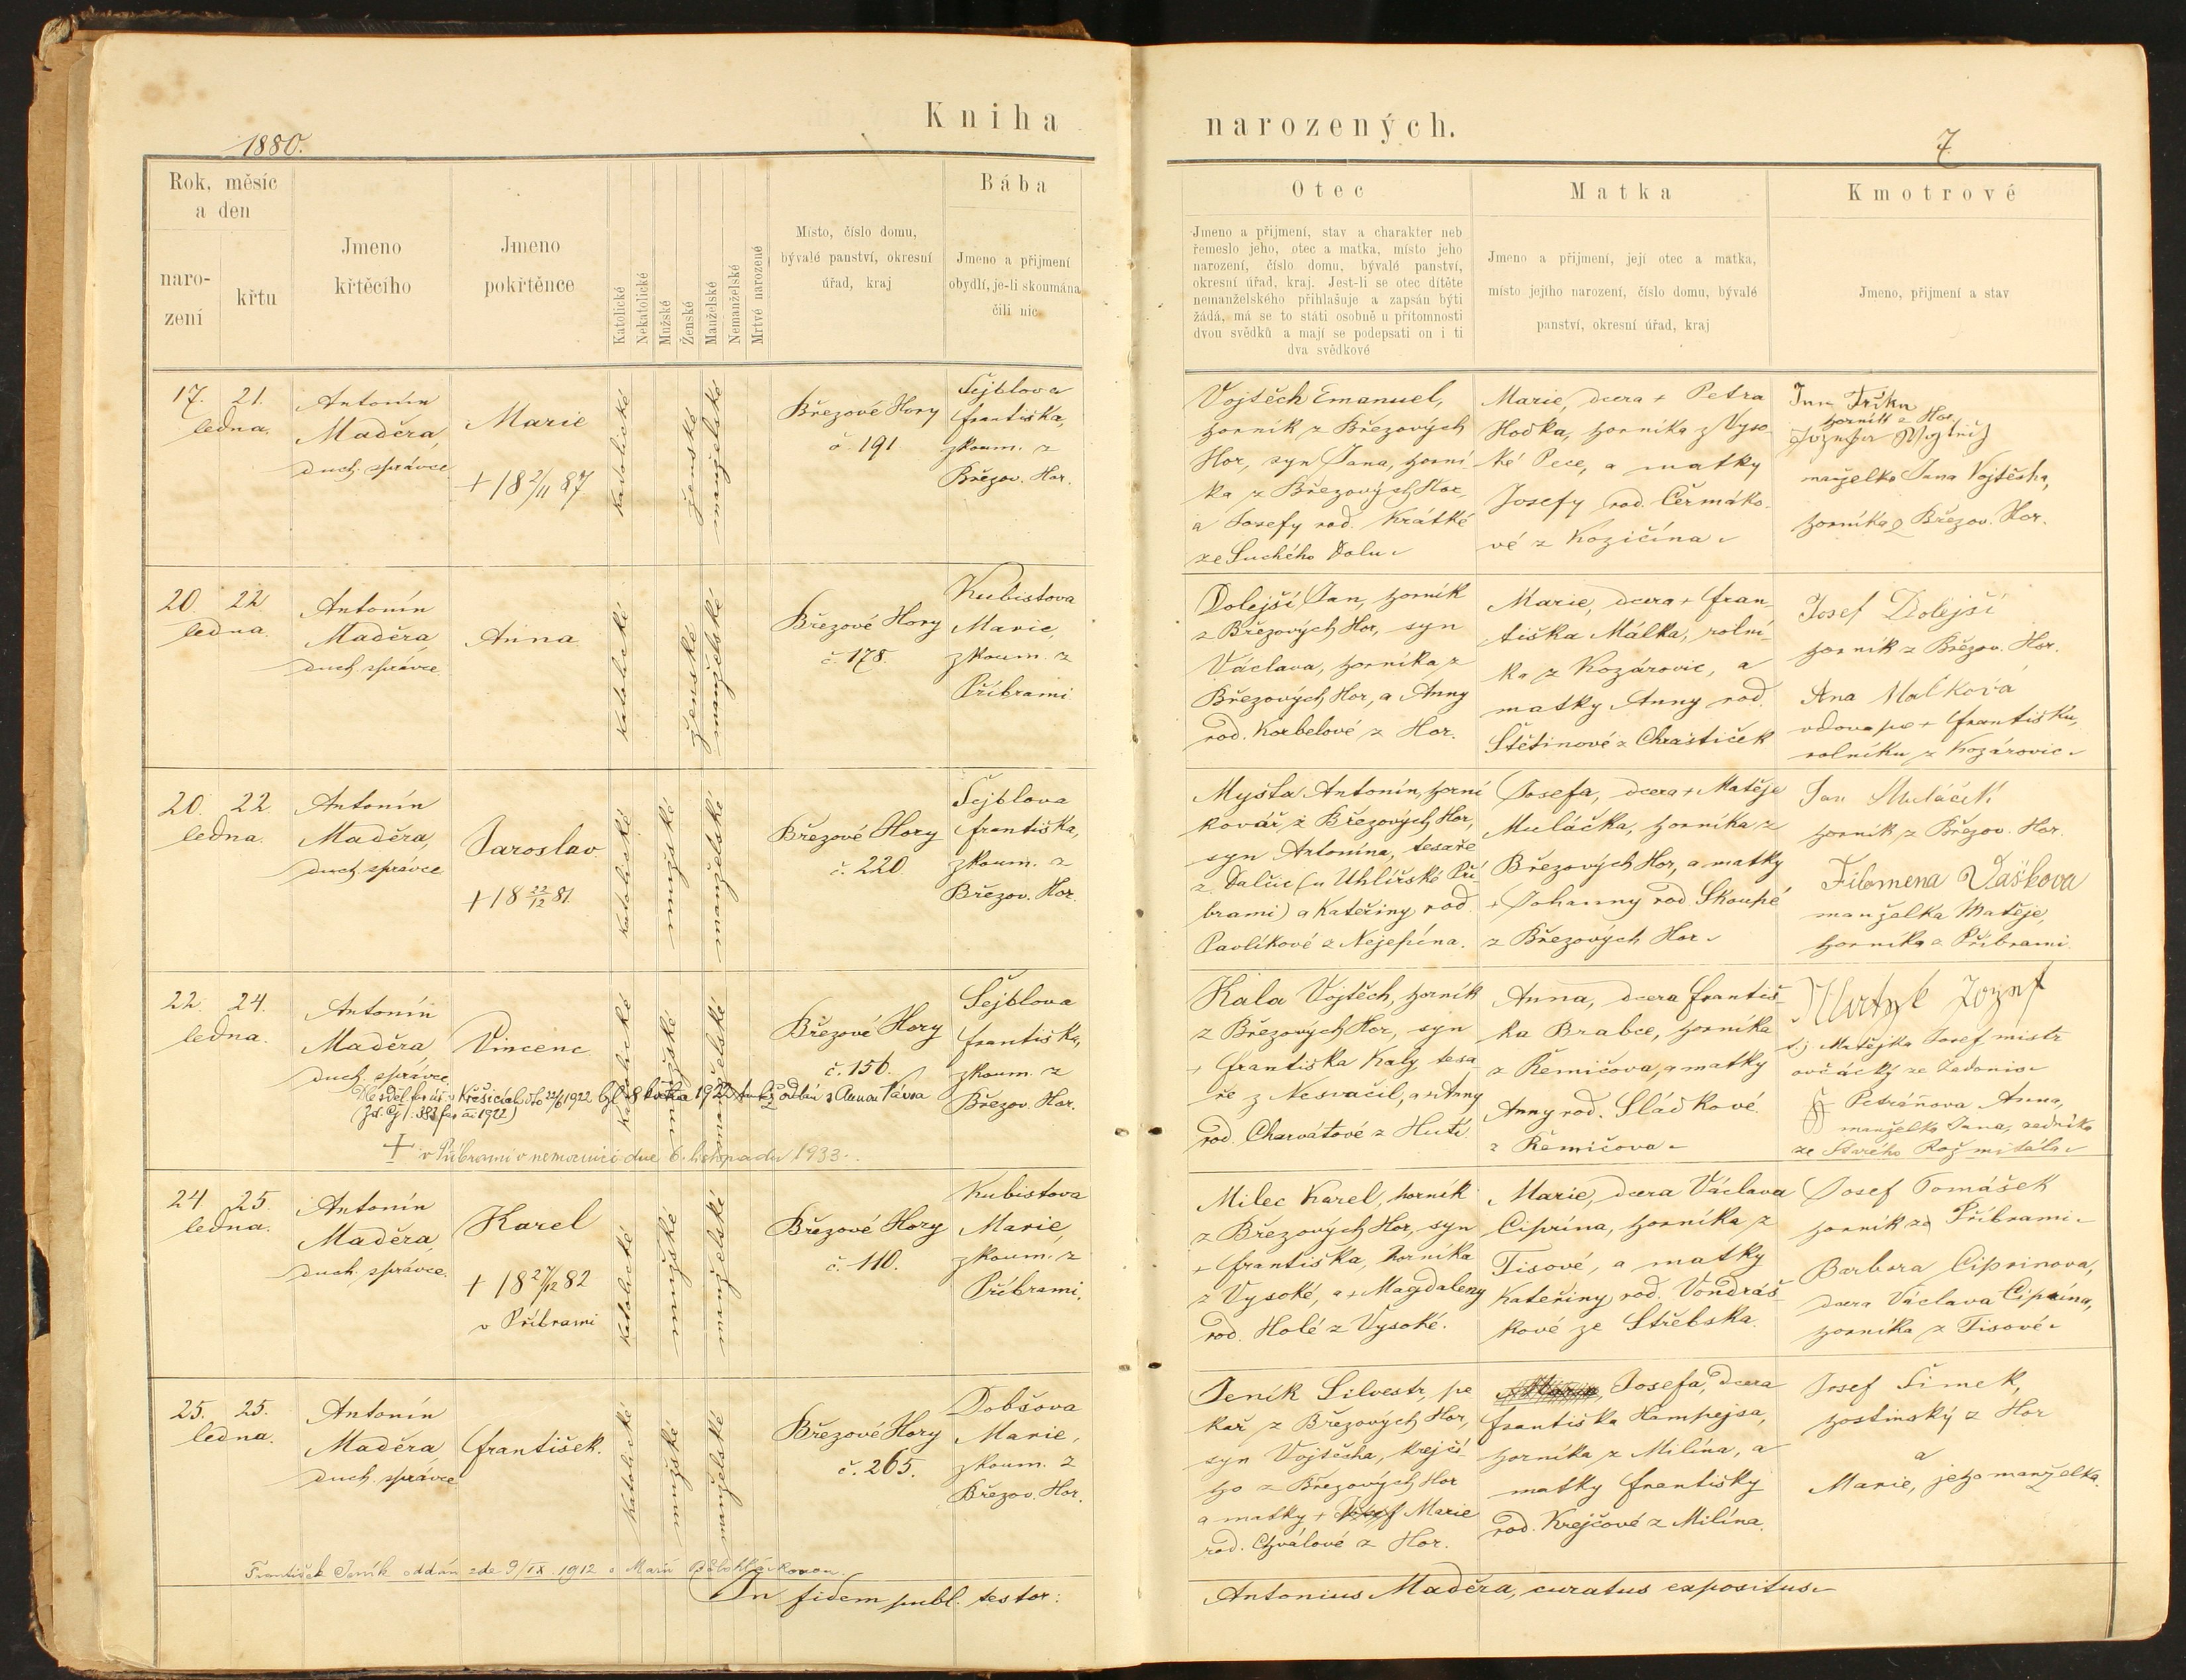 Kniha
narozených.
1880.
7.
Rok, měsíc
a den
naro-
zení
křtu
Jmeno
křtěcího
Jmeno
pokřtěnce
Katolické
Nekatolické
Mužské
Ženské
Manželské
Nemanželské
Mrtvě narozené
Místo, číslo domu,
bývalé panství, okresní
úřad, kraj
Bába
Jmeno a přijmení
obydlí, je-li skoumána
čili nic
Otec
Jmeno a přijmení, stav a charakter neb
řemeslo jeho, otec a matka, místo jeho
narození, číslo domu, bývalé panství,
okresní úřad, kraj. Jest-li se otec dítěte
nemanželského přihlašuje a zapsán býti
žádá, má se to státi osobně u přítomnosti
dvou svědků a mají se podepsati on i ti
dva svědkové
Matka
Jmeno a přijmení, její otec a matka,
místo jejího narození, číslo domu, bývalé
panství, okresní úřad, kraj
Kmotrové
Jmeno, přijmení a stav
17. 21.
ledna.
Antonín
Maděra,
duch. správce
Marie
+ 18 2/11 87
katolické
ženské
manželské
Březové Hory
č. 191.
Šejblova
Františka,
zkoum. z
Březov. Hor.
Vojtěch Emanuel,
horník z Březových
Hor, syn Jana, horní
ka z Březových Hor,
a Josefy rod. Krátké
ze Suchého Dolu
Marie, dcera + Petra
Hodka, horníka z Vyso-
ké Pece, a matky
Josefy rod. Čermáko-
vé z Kozičína
Jan Trška
horník z Hor,
manželka Jana Vojtěcha,
horníka z Březov. Hor.
20. 22
ledna.
Antonín
Maděra,
duch. správce.
Anna
katolické
ženské
manželské
Březové Hory
č. 178.
Kubistova
Marie,
zkoum. z
Příbrami
Dolejší Jan, horník
z Březových Hor, syn
Václava, horníka z
Březových Hor, a Anny
rod. Korbelové z Hor.
Marie, dcera + Fran-
tiška Málka, rolní-
ka z Kozárovic, a
matky Anny rod.
Štětinové z Chraštiček
Josef Dolejší
horník z Březov. Hor.
Ana Malková
vdova po + Františku,
rolníku z Kozárovic
20. 22.
ledna.
Antonín
Maděra,
duch. správce
Jaroslav.
+ 18 22/12 81.
katolické
mužské
manželské
Březové Hory
č. 220.
Šejblova
Františka,
zkoum. z
Březov. Hor.
Myšta Antonín, horní
kovář z Březových Hor,
syn Antonína, tesaře
z Dalčic (u Uhlířské Pří-
brami) a Kateřiny rod.
Pavlíkové z Nejepína.
Josefa, dcera + Matěje
Muláčka, horníka z
Březových Hor, a matky
+ Johanny rod Skoupé
z Březových Hor
Jan Muláček
horník z Březov. Hor.
Filomena Vaškova
manželka Matěje,
horníka z Příbrami
22. 24.
ledna.
Antonín
Maděra
duch. správce
Vincenc.
katolické
mužské
manželské
Březové Hory
č. 156.
Šejblova
Františka,
zkoum. z
Březov. Hor.
Kala Vojtěch, horník
z Březových Hor, syn
+ Františka Kaly, tesa
ře z Nesvačil, a + Anny
rod. Charvátové z Hutí.
Anna, dcera Františ-
ka Brabce, horníka
z Řemičova, a matky
Anny rod. Sládkové.
z Řemičova
t.j. Matějka Josef mistr
ovčácký ze Zadonic
Petráňova Anna,
manželka Jana, zedníka
ze Starého Rožmitálu
+ v Příbrami v nemocnici dne 6. listopadu 1933.
24 25.
ledna.
Antonín
Maděra,
duch. správce.
Karel
+ 18 27/12 82
v Příbrami
katolické
mužské
manželské
Březové Hory
č. 110.
Kubistova
Marie,
zkoum. z
Příbrami.
Milec Karel, horník
z Březových Hor, syn
+ Františka, horníka
z Vysoké, a + Magdaleny
rod. Holé z Vysoké.
Marie, dcera Václava
Ciprína, horníka z
Tisové, a matky
Kateřiny rod. Vondráš-
kové ze Střebska.
Josef Tomášek
horník za Příbrami
Barbora Ciprinova,
dcera Václava Ciprína,
horníka z Tisové
25. 25.
ledna.
Antonín
Maděra,
duch. správce
František.
Katolické
mužské
manželské
Březové Hory
č. 265.
Dobšova
Marie,
zkoum. z
Březov. Hor.
Jeník Silvestr, pe
kař z Březových Hor,
syn Vojtěcha, krejčí-
ho z Březových Hor
a matky + Marie
rod. Chválové z Hor.
Josefa, dcera
Františka Hampejsa,
horníka z Milína, a
matky Františky
rod. Krejčové z Milína.
Josef Šimek,
hostinský z Hor
a
Marie, jeho manželka.
František Jeník oddán zde 9/IX. 1912 s Marií Bělohlávkovou.
In fidem publ. testor:
Antonius Maděra, curatus expositus